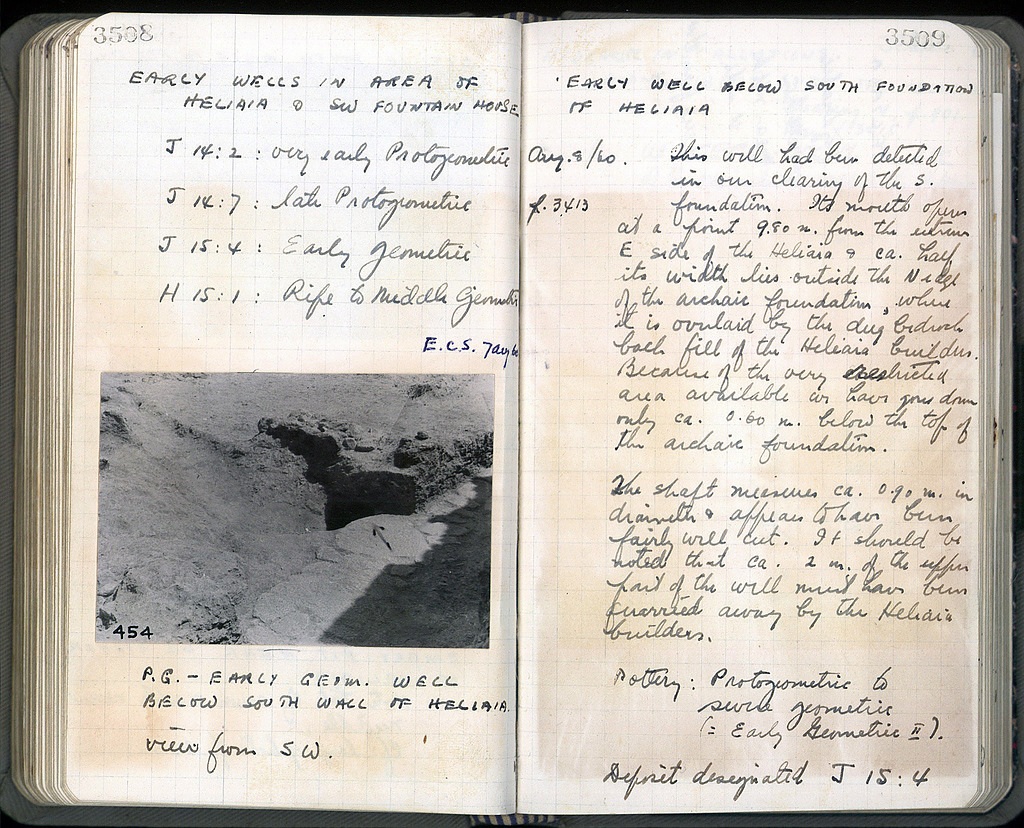 3508
EARLY WELLS IN AREA OF
HELIAIA & SW FOUNTAIN HOUSE
J 14:2 : very early Protogeometric
J 14:7 : late Protogeometric
J 15:4 : Early Geometric
H 15:1 : Ripe to Middle Geometric
E.C.S.
454
P.G. - EARLY GEOM. WELL
BELOW SOUTH WALL OF HELIAIA.
view from SW.
3509
EARLY WELL BELOW SOUTH FOUNDATION
OF HELIAIA
Aug. 8/60. This well had been detected
in our clearing of the S.
f. 3413 foundation. Its mouth opens
at a point 9.80 m. from the extreme
E side of the Heliaia & ca. half
its width lies outside the N edge
of the archaic foundation, where
it is overlaid by the dug bedrock
back fill of the Heliaia builders.
Because of the very restricted
area available we have gone down
only ca. 0.60 m. below the top of
the archaic foundation.
The shaft measures ca. 0.90 m. in
diameter & appears to have been
fairly well cut. It should be
noted that ca. 2 m. of the upper
part of the well must have been
quarried away by the Heliaia
builders.
Pottery: Protogeometric to
severe geometric
(= Early Geometric II).
Deposit designated J 15:4